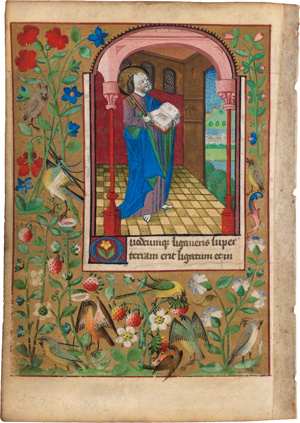 Quodcumq; ligaveris super
terram erit ligatum et in